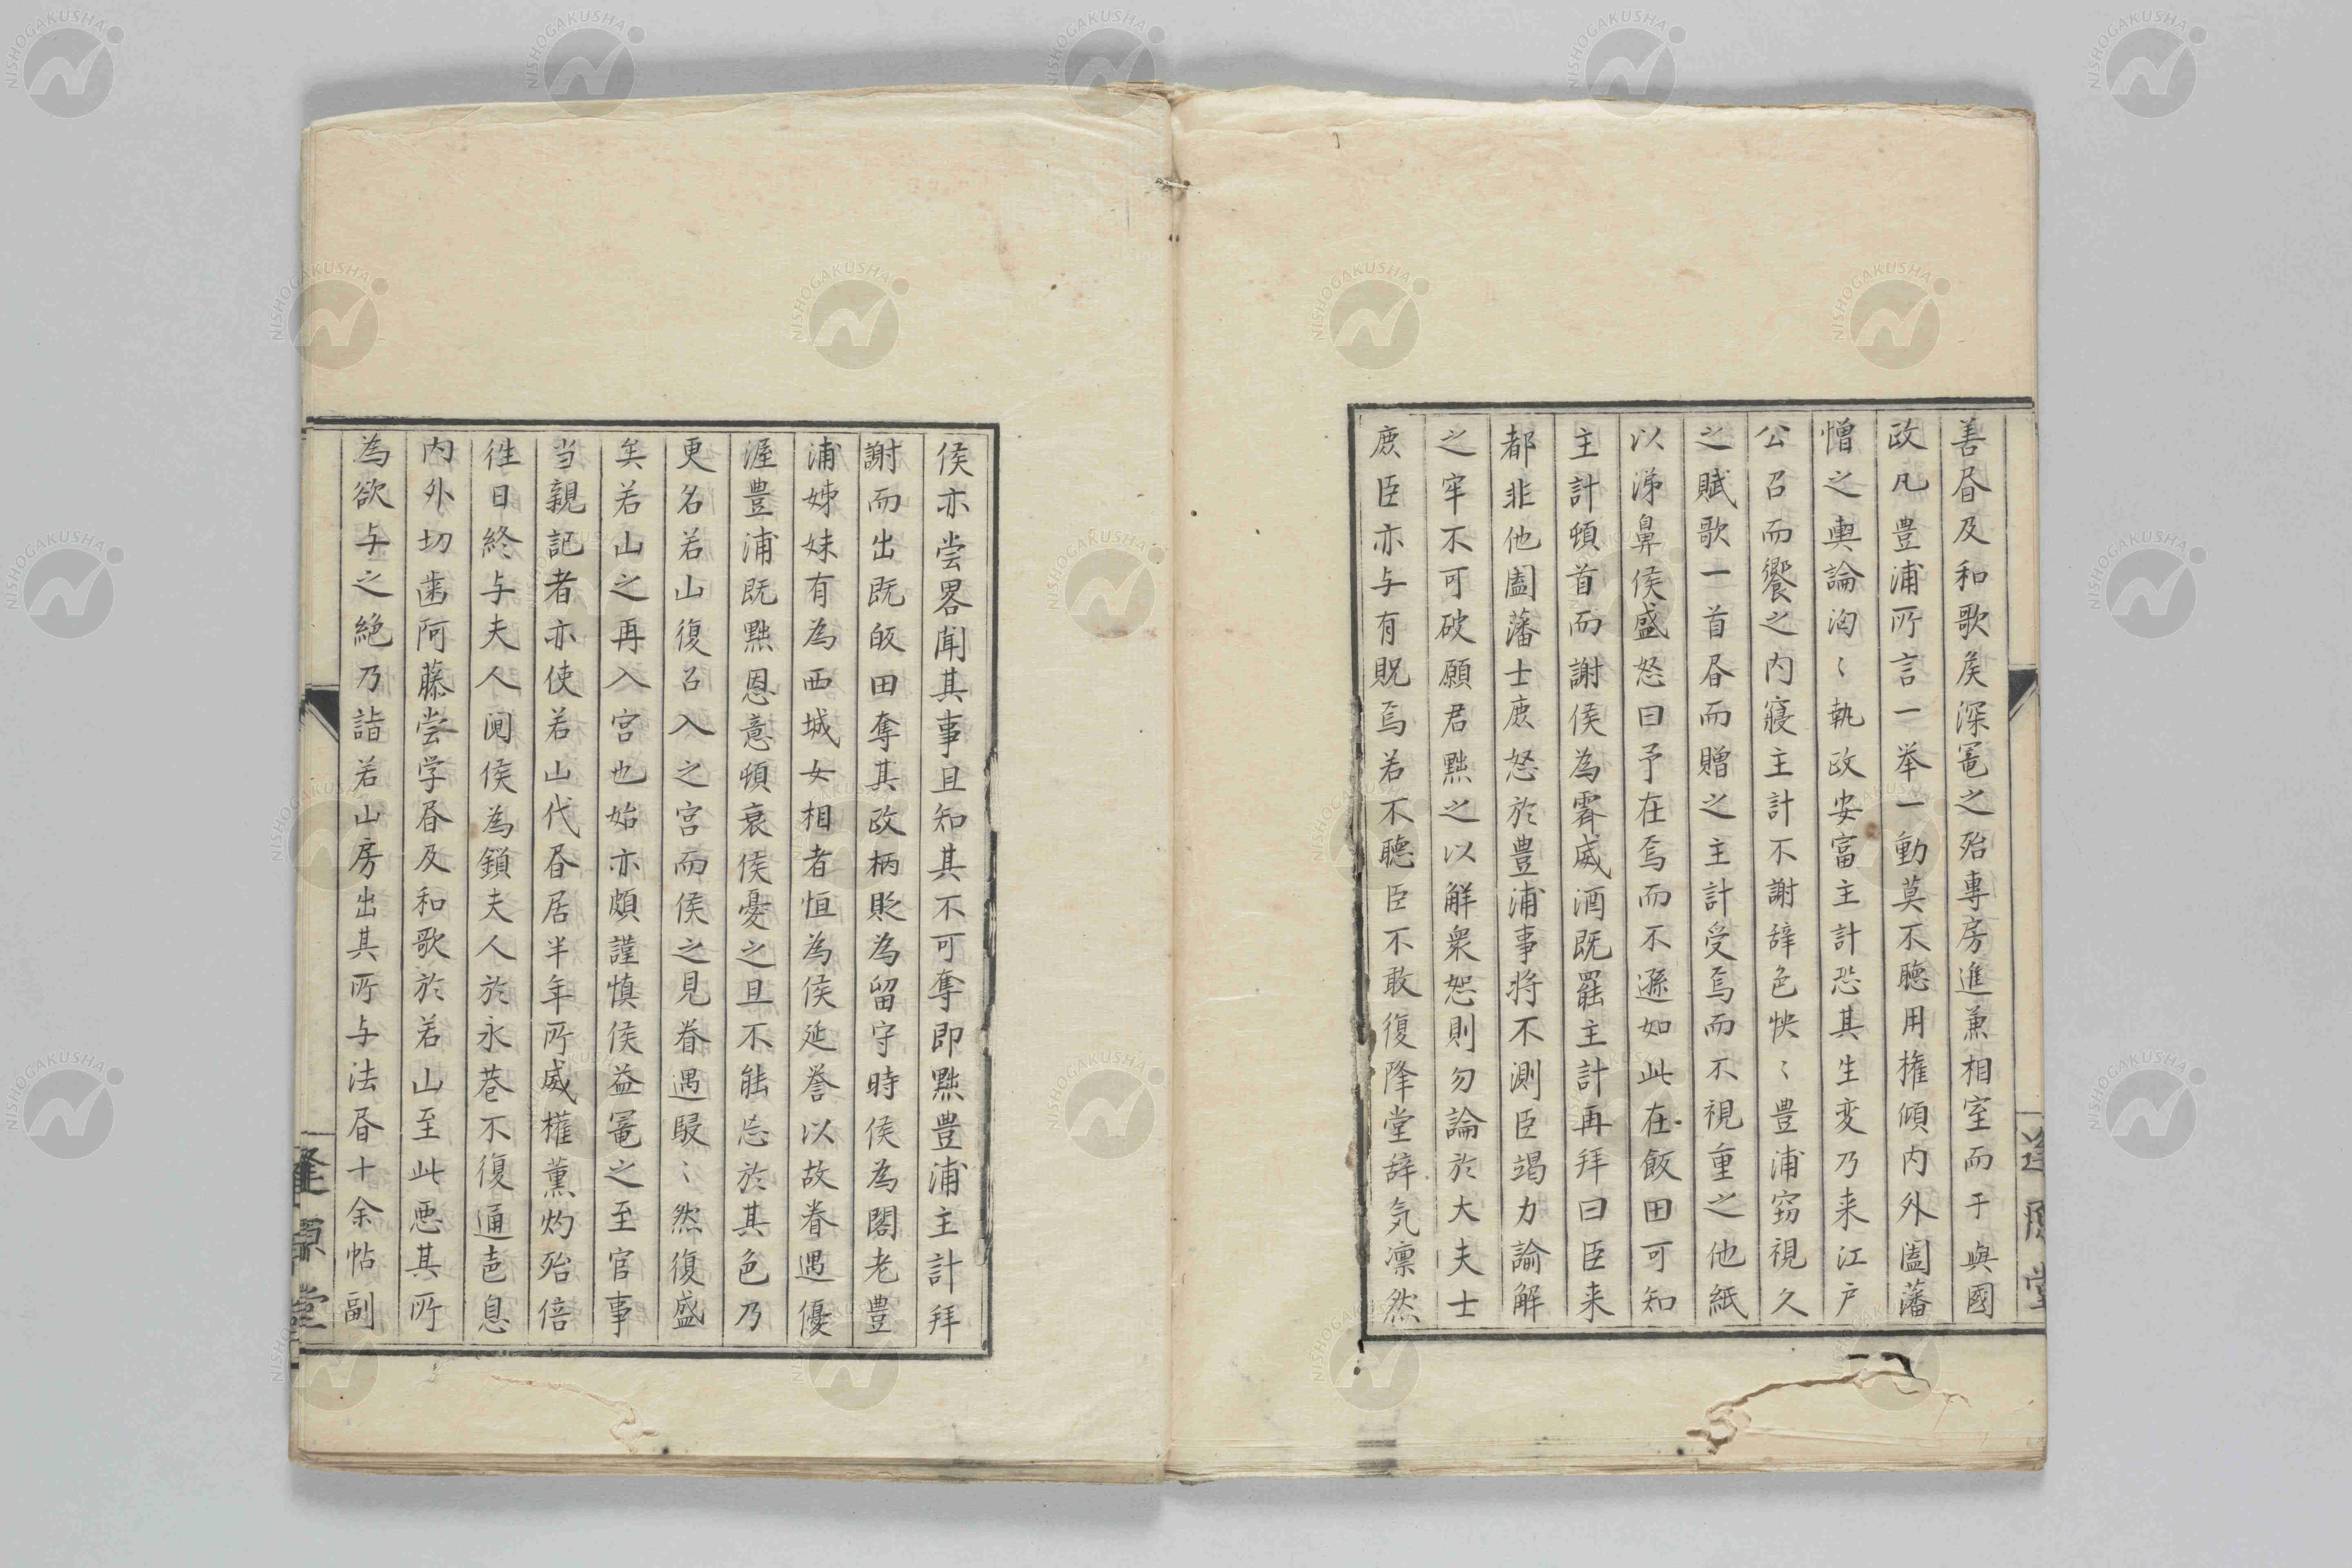 善書及和歌矦深寵之殆專房進兼相室而干與國
政凡豊浦所言一举一動莫不聴用権傾内外闔藩
憎之輿論洶〻執政安富主計恐其生変乃来江戸
公召而饗之内寢主計不謝辞色怏〻豊浦窃視久
之賦歌一首書而贈之主計受焉而不視重之他紙
以涕鼻侯盛怒曰予在焉而不遜如此在飯田可知
主計頓首而謝侯為霽威酒既罷主計再拝曰臣来
都非他闔藩士庶怒於豊浦事将不測臣竭力諭解
之牢不可破願君黜之以解衆怨則勿論於大夫士
庶臣亦与有貺焉若不聴臣不敢復降堂辞気凛然
侯亦尝畧聞其事且知其不可奪即黜豊浦主計拜
謝而出既皈田奪其政柄貶為留守時侯為閣老豊
浦姊妹有為西城女相者恒為侯延誉以故眷遇優
渥豊浦既黜恩意頓衰侯憂之且不能忘於其色乃
更名若山復召入之宮而侯之見眷遇駸〻然復盛
矣若山之再入宮也始亦頗謹慎侯益寵之至官事
当親記者亦使若山代書居半年所威權薫灼殆倍
徃日終与夫人鬩侯為鎖夫人於永巷不復通音息
内外切歯阿藤尝学書及和歌於若山至此悪其所
為欲与之絶乃詣若山房出其所与法書十余帖副
逢原堂